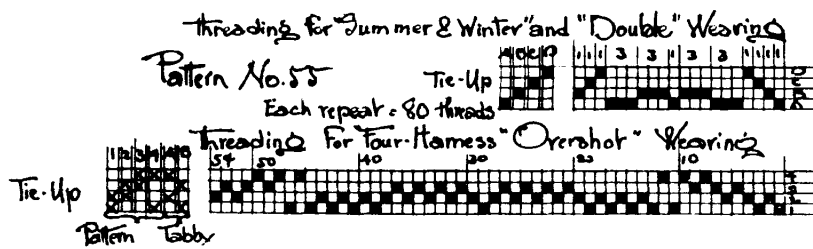 Threading for "Summer & Winter" and "Double" Weaving
Pattern No. 55
Tie-Up
Each repeat = 80 threads
Threading For Four-Harness "Overshot" Weaving
54 50 40 30 20 10
Tie-Up
Pattern Tabby